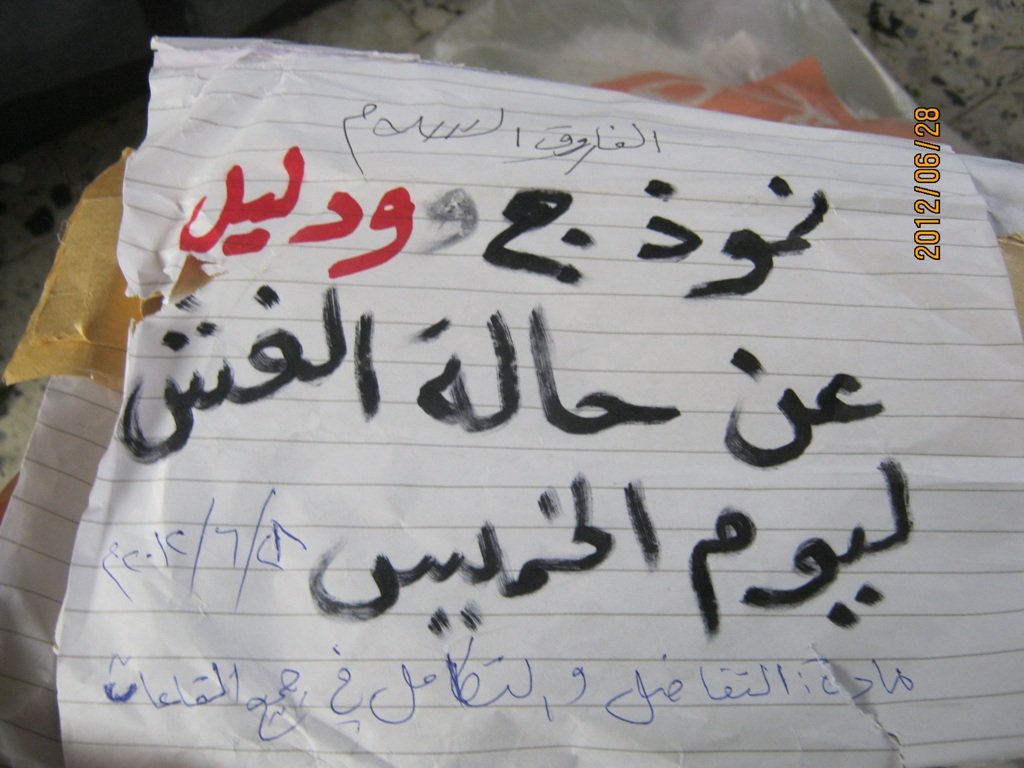 الفاروق السلام
نموذج و ودليل
عن حالة الغش
ليوم الخميس ٢٨/٦/٢٠١٢م
مادة: التفاضل والتكامل في جميع القاعات
2012/06/28